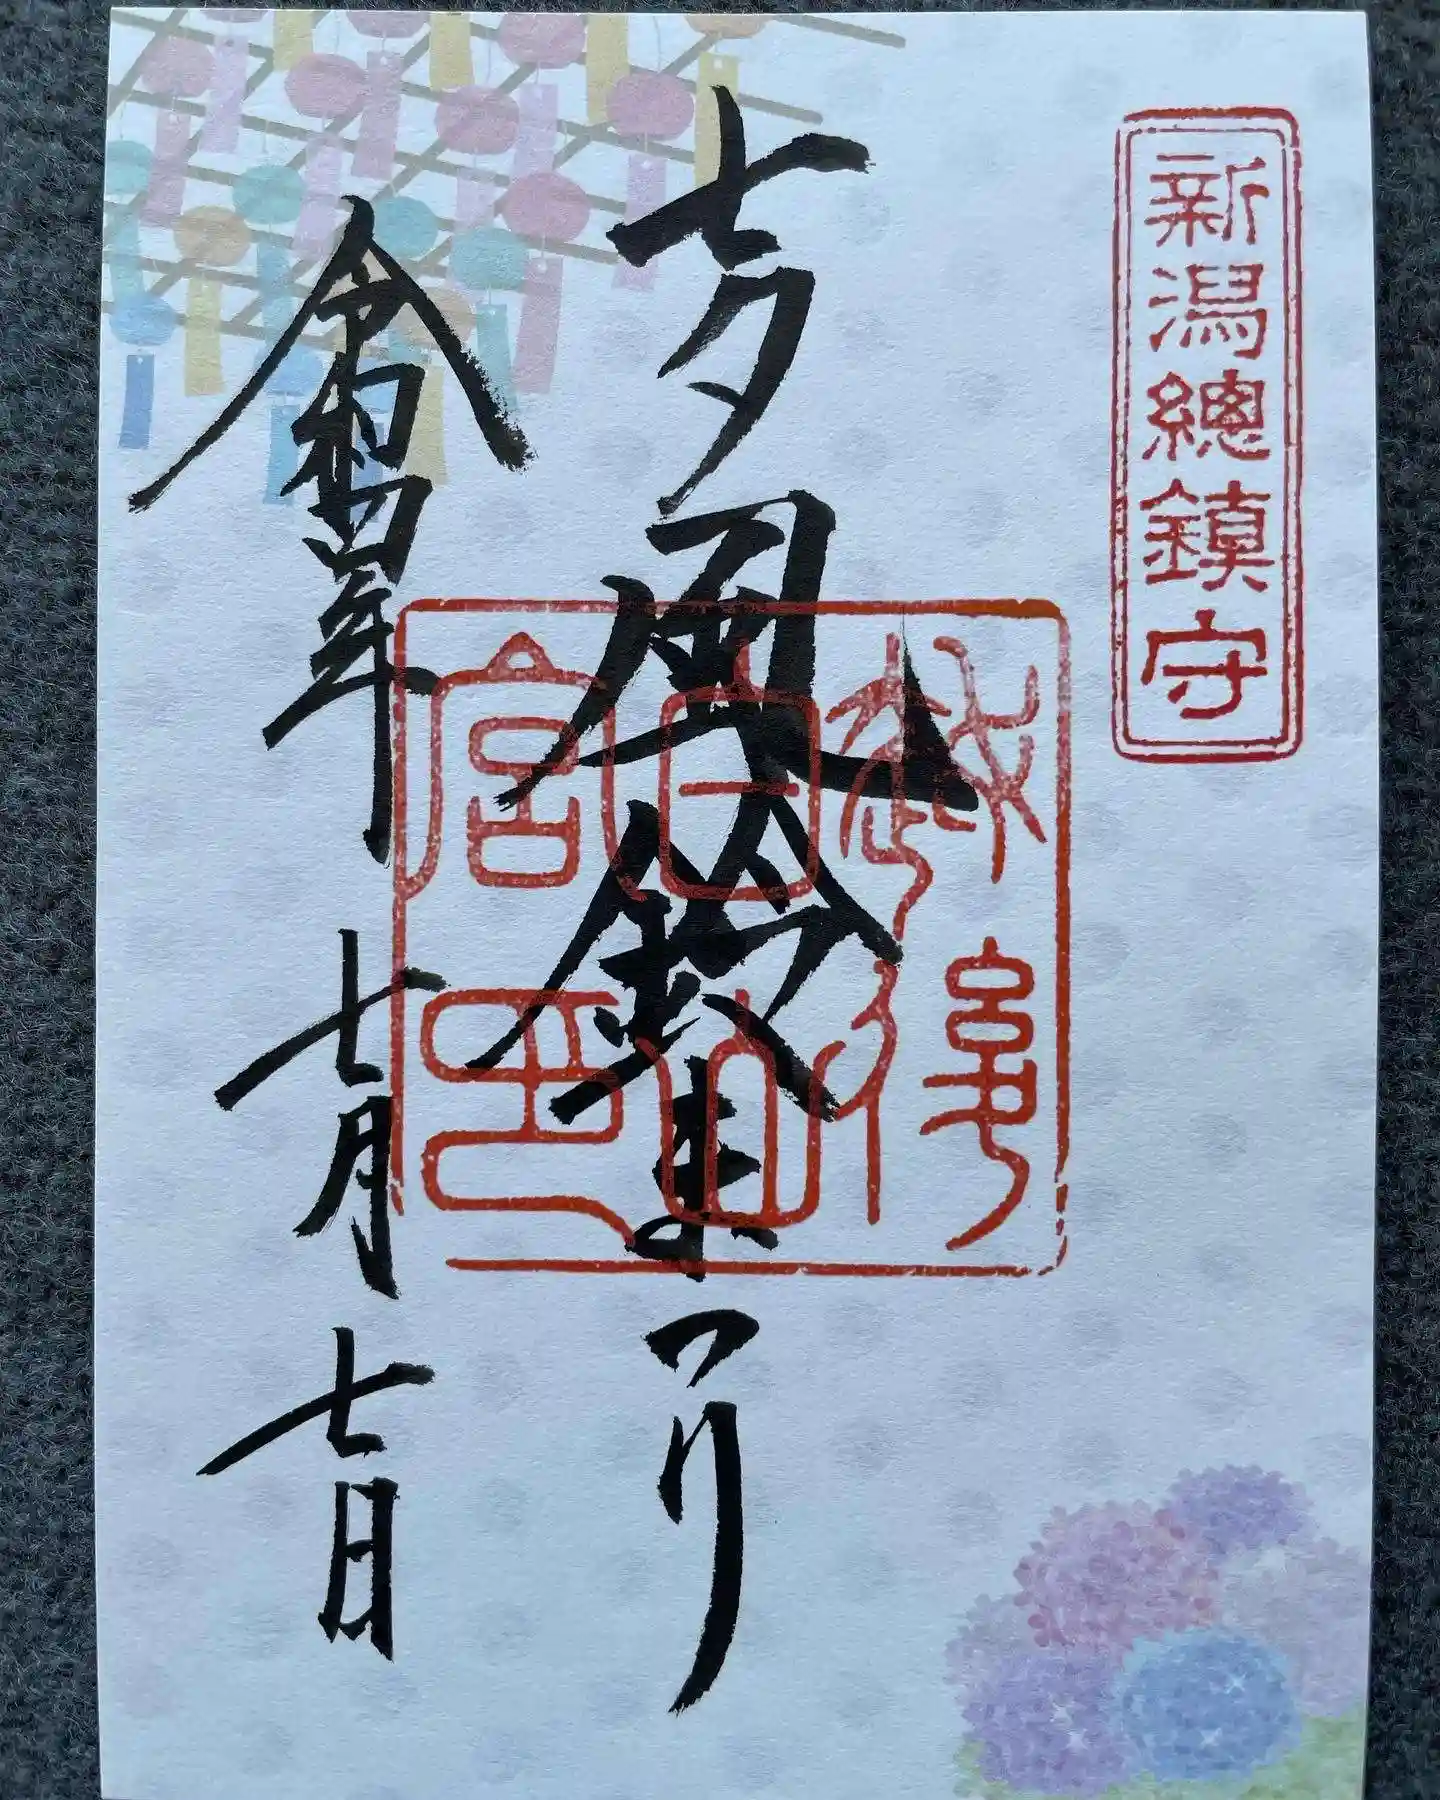 新潟總鎮守
七夕風鈴まつり
越後
白山
宮印
令和四年 七月 七日